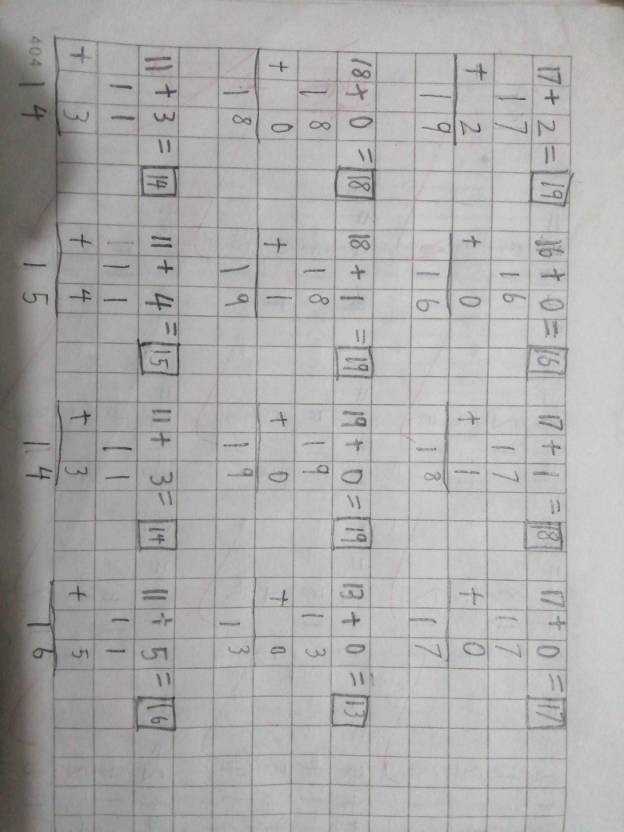 17 + 2 = 19 16 + 0 = 16 17 + 1 = 18 17 + 0 = 17
17 16 17 17
+ 2 + 0 + 1 + 0
19 16 18 17
18 + 0 = 18 18 + 1 = 19 19 + 0 = 19 13 + 0 = 13
18 18 19 13
+ 0 + 1 + 0 + 0
18 19 19 13
11 + 3 = 14 11 + 4 = 15 11 + 3 = 14 11 + 5 = 16
11 11 11 11
+ 3 + 4 + 3 + 5
14 15 14 16
404